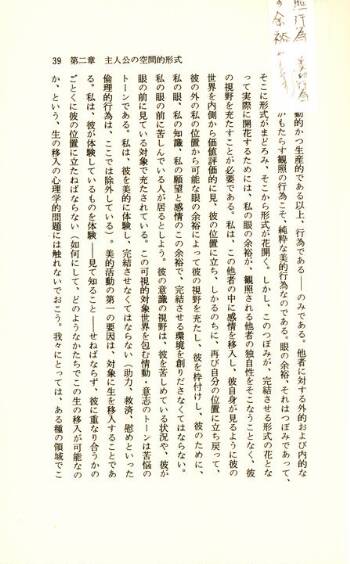 39　第二章　主人公の空間的形式
動的かつ生産的である以上、行為である――のみである。他者に対する外的および内的な
がもたらす観照の行為こそ、純粋な美的行為なのである。眼の余裕、それはつぼみであって、
そこに形式がまどろみ、そこから形式が花開く。しかし、このつぼみが、完結させる形式の花とな
って実際に開花するためには、私の眼の余裕が、観照される他者の独自性をそこなうことなく、彼
の視野を充たすことが必要である。私は、この他者の中に感情を移入し、彼自身が見るように彼の
世界を内側から価値評価的に見、彼の位置に立ち、しかるのちに、再び自分の位置に立ち戻って、
彼の外の私の位置から可能な眼の余裕によって彼の視野を充たし、彼を枠付けし、彼のために、
私の眼、私の知識、私の願望と感情のこの余裕で、完結させる環境を創りださなくてはならない。
私の眼の前に苦しんでいる人が居るとしよう。彼の意識の視野は、彼を苦しめている状況や、彼が
眼の前に見ている対象で充たされている。この可視的対象世界を包む情動・意志のトーンは苦悩の
トーンである。私は、彼を美的に体験し、完結させなくてはならない（助力、救済、慰めといった
倫理的行為は、ここでは除外している）。美的活動の第一の要因は、対象に生を移入することであ
る。私は、彼が体験しているものを体験――見て知ること――せねばならず、彼に重なり合うかの
ごとくに彼の位置に立たねばならない（如何にして、どのようなかたちでこの生の移入が可能なの
か、という、生の移入の心理学的問題には触れないでおこう。我々にとっては、ある種の領域でこ